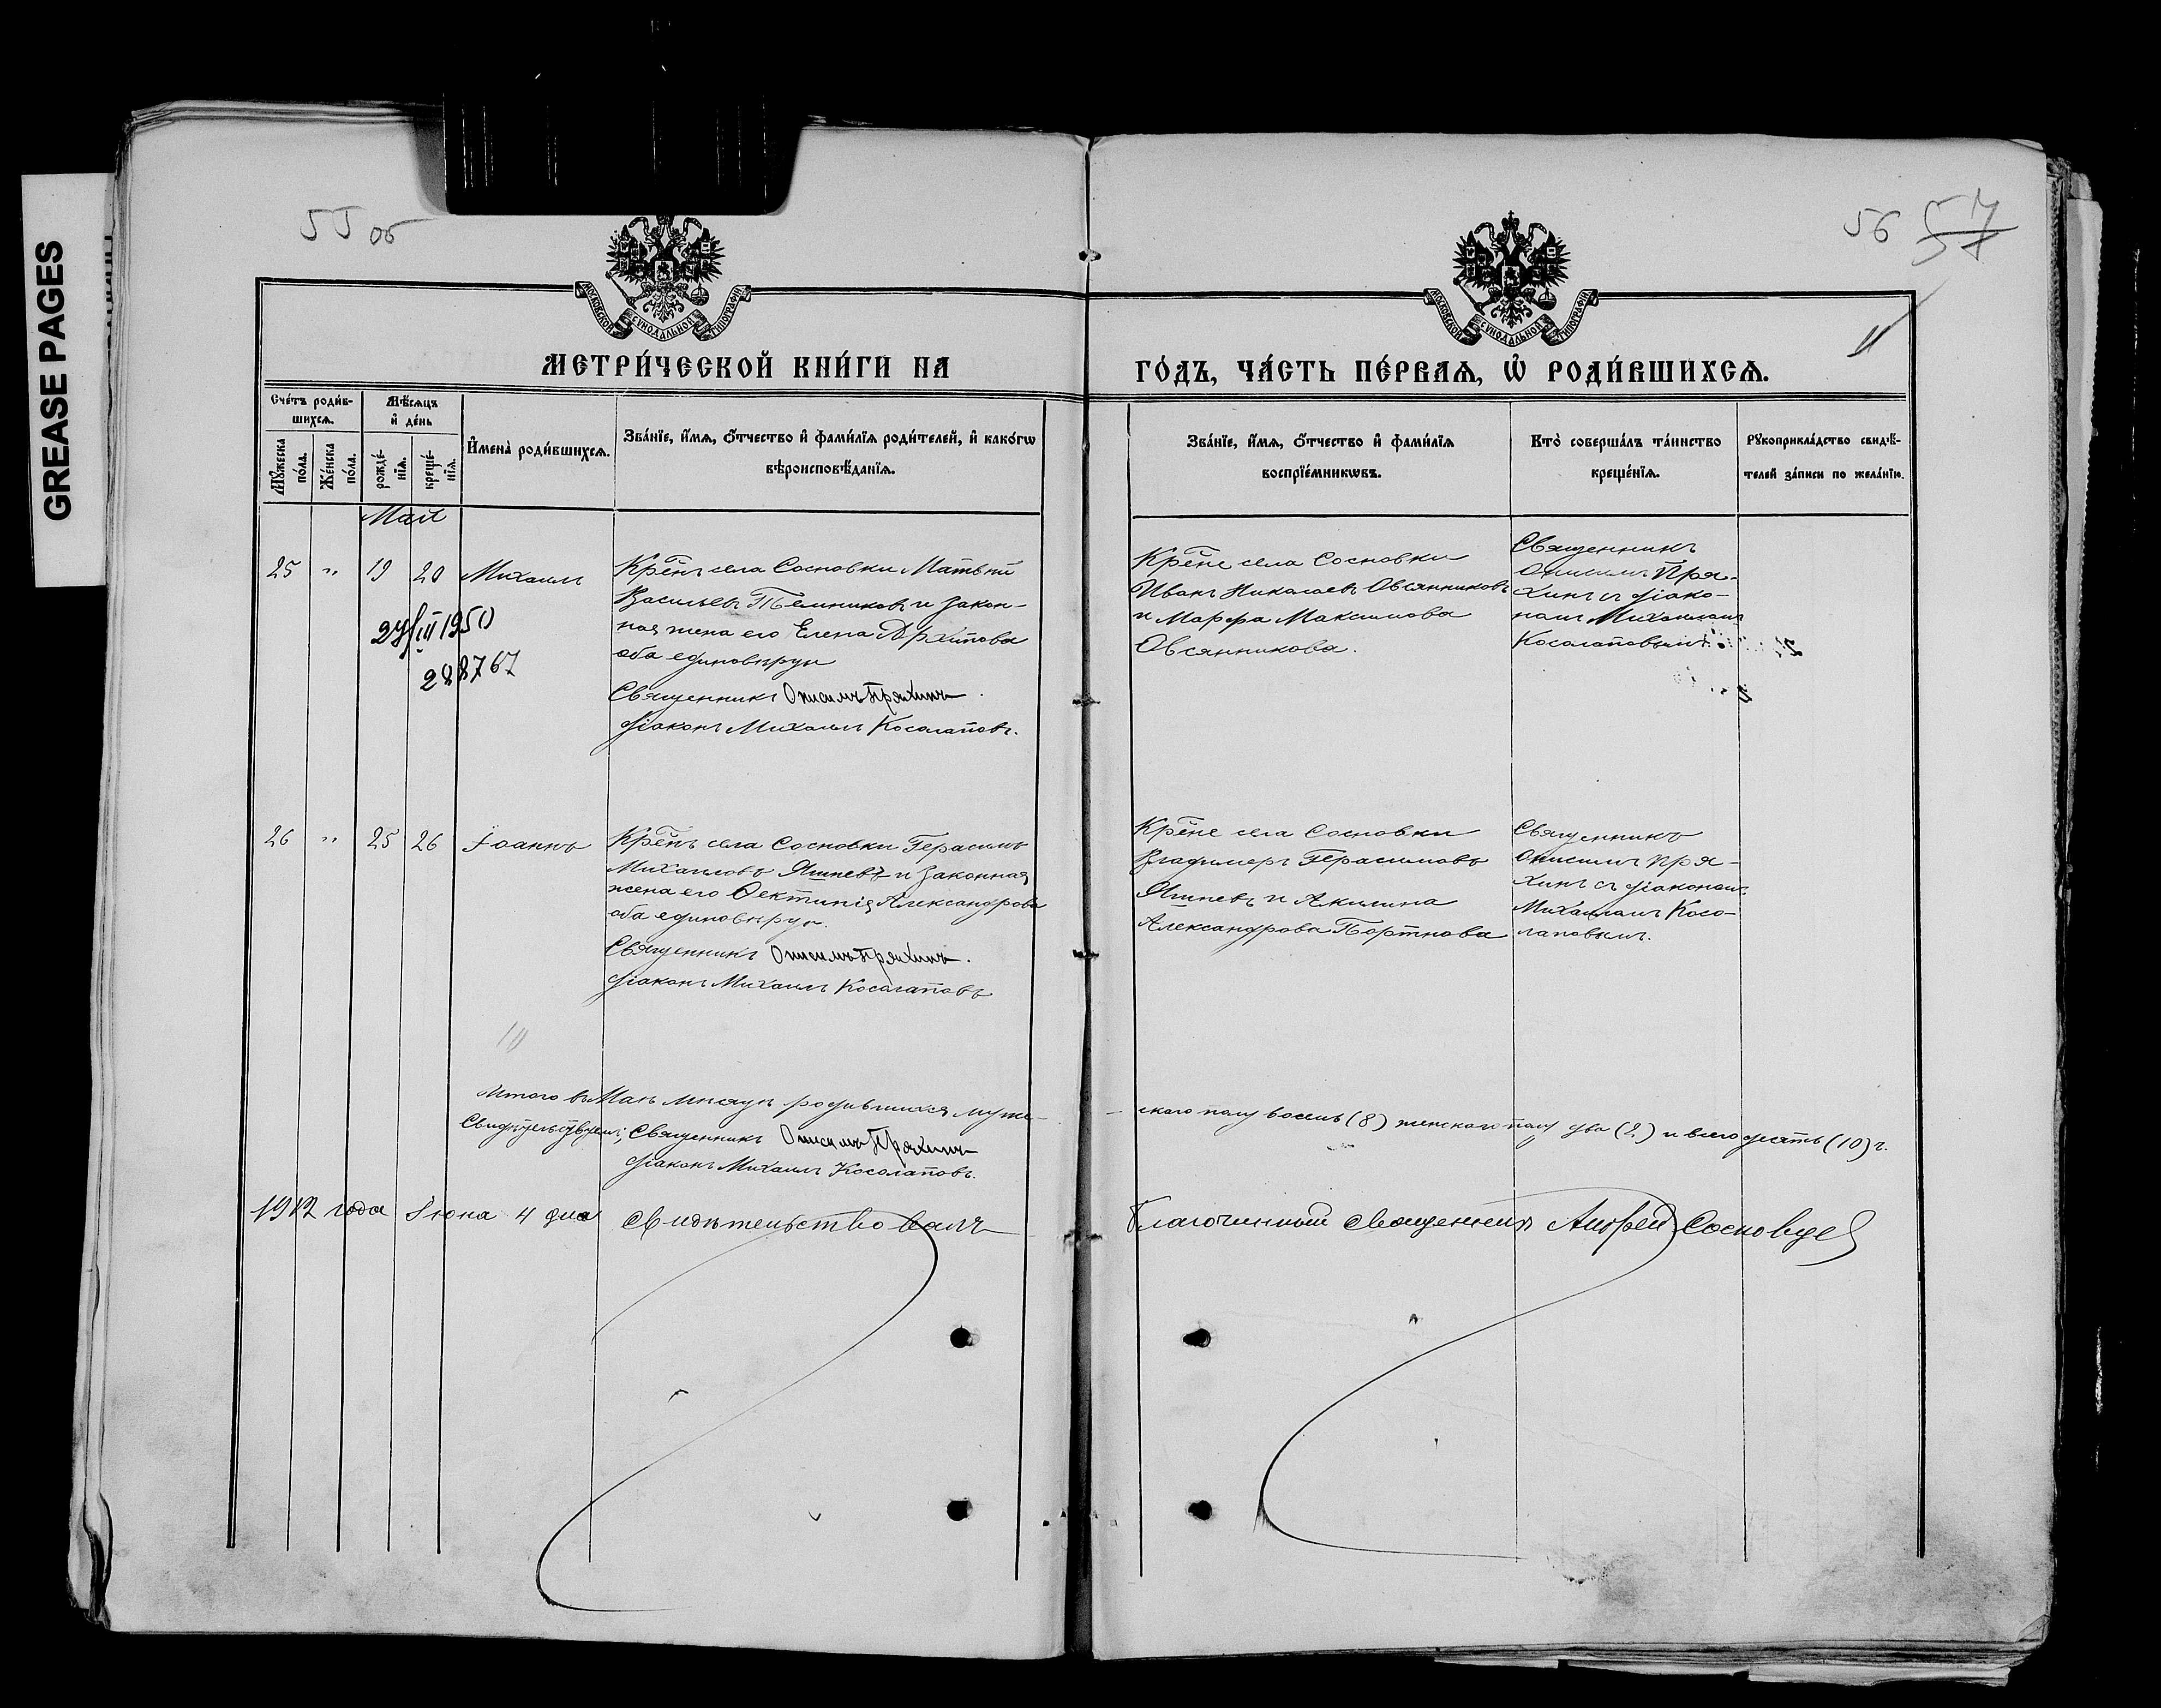 GREASE PAGES
55 об
56 57
МОСКОВСКОЙ СѴНОДАЛЬНОЙ ТИПОГРАФІИ
МОСКОВСКОЙ СѴНОДАЛЬНОЙ ТИПОГРАФІИ
МЕТРИ́ЧЕСКОЙ КНИ́ГИ НА
ГО́ДЪ, ЧА́СТЬ ПЕ́РВАѦ, Ѽ РОДИ́ВШИХСѦ.
Сче́тъ роди́в-
шихсѧ.
Мѣ́сѧцъ
и҆ де́нь
Мꙋ́жеска
по́ла.
Же́нска
по́ла.
рожде́-
нїѧ.
креще́-
нїѧ.
И҆мена̀ роди́вшихсѧ.
Зва́нїе, и҆́мѧ, ѻ҆́тчество и҆ фами́лїѧ роди́телей, и҆ како́гѡ
вѣроисповѣ́данїѧ.
Зва́нїе, и҆́мѧ, ѻ҆́тчество и҆ фами́лїѧ
воспрїе́мникѡвъ.
Кто̀ соверша́лъ та́инство
креще́нїѧ.
Рꙋкоприкла́дство свидѣ́-
телей за́писи по жела́нїю.
Май
25 " 19 20 Михаилъ
Крѣнъ села Сосновки Матвѣй
Васильевъ Темниковъ и закон-
ная жена его Елена Архипова
оба единовѣрцы
Священникъ Онисимъ Пряхинъ.
Діаконъ Михаилъ Косолаповъ.
27/III 1950
288767
Крѣне села Сосновки
Иванъ Николаевъ Овсянниковъ
и Марфа Максимова
Овсянникова.
Священникъ
Онисимъ Пря-
хинъ съ діако-
номъ Михаиломъ
Косолаповымъ.
26 " 25 26 Іоаннъ
Крѣнъ села Сосновки Герасимъ
Михаиловъ Яшневъ и законная
жена его Фектинія Александрова
оба единовѣрцы.
Священникъ Онисимъ Пряхинъ.
Діаконъ Михаилъ Косолаповъ
Крѣне села Сосновки
Владимеръ Герасимовъ
Яшневъ и Акилина
Александрова Портнова
Священникъ
Онисимъ Пря-
хинъ съ діакономъ
Михаиломъ Косо-
лаповымъ.
10
Итого въ Маѣ мѣсяцѣ родившихся муже-
скаго полу восемь (8) женскаго полу два (2) и всего десять (10) ч.
Свидѣтельствуемъ; Священникъ Онисимъ Пряхинъ
Діаконъ Михаилъ Косолаповъ.
1912 года Іюна 4 дня свидѣтельствовалъ
Благочинный Священникъ Андрей